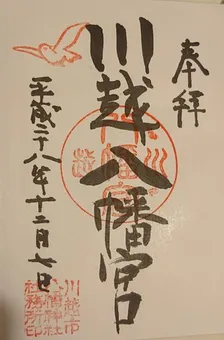 奉拝
川越八幡宮
平成二十八年十二月七日
川越市
八幡神社
社務所印